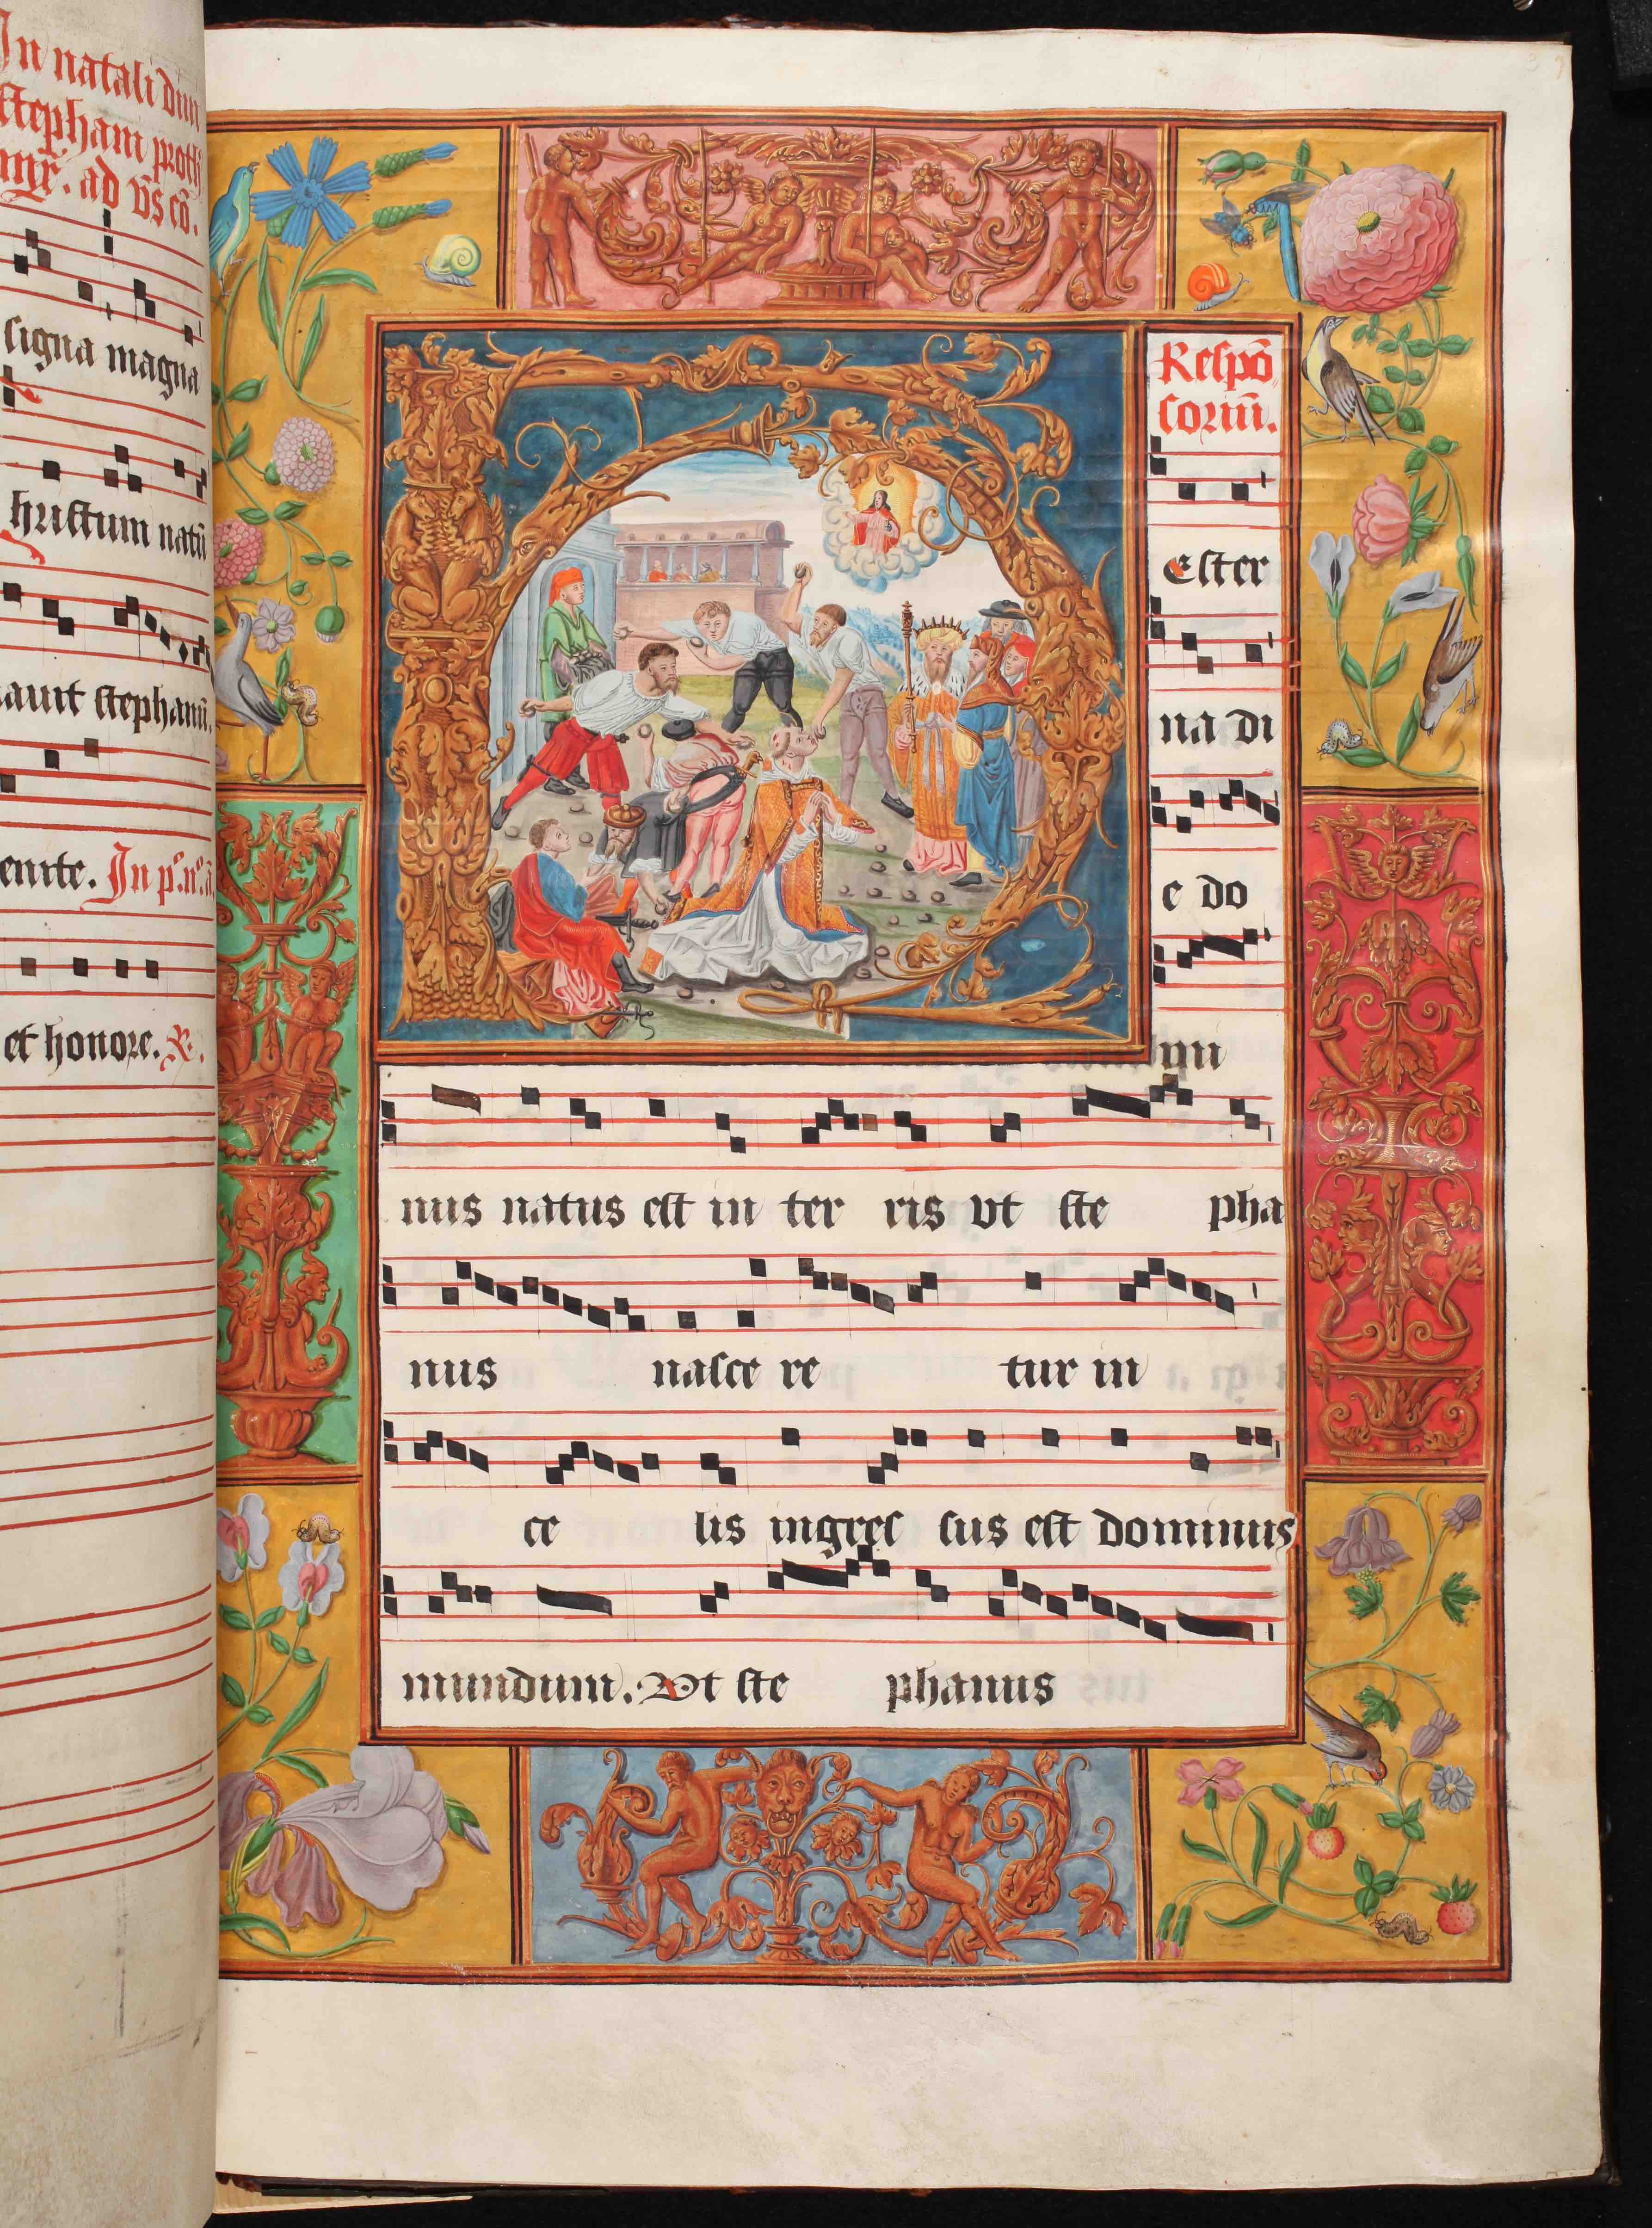 In natali diui
stephani proth
mr̃. ad v̄s cō.
signa magna
hristum natū
auit stephanū.
enite. In pº. nº. ā
et honore. R.
Respō
soriū.
ester
na di
e do
qui
nus natus est in ter ris vt ste pha
nus nasce re tur in
ce lis ingres sus est dominus
mundum. Vt ste phanus